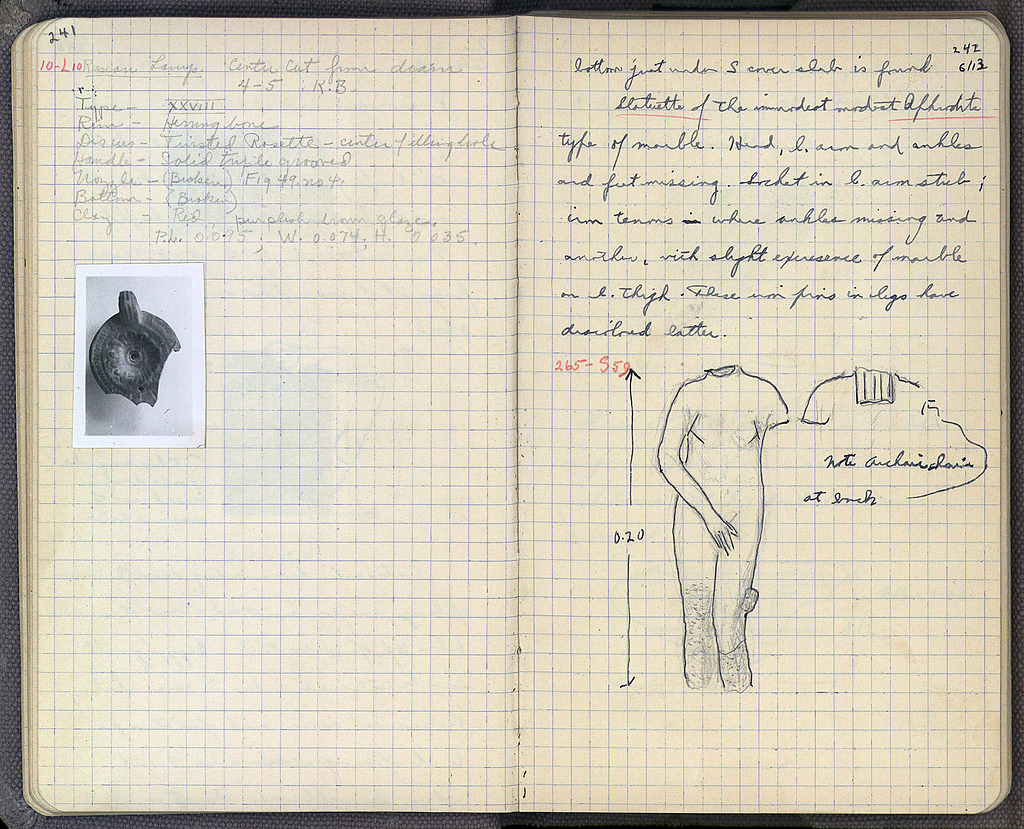 241
10-L10 Roman Lamp. Center Cut from drain
4-5 K.B.
Type - XXVIII
Rim - Herring bone
Discus - Twisted Rosette - center filling hole
Handle - Solid triple grooved
Nozzle - (Broken) Fig 49. no 4.
Bottom - (Broken)
Clay - Red, purplish brown glaze.
P.L. 0.095; W. 0.074; H. 0.035.
242
6/13
bottom just under S cover slab is found
Statuette of the immodest modest Aphrodite
type of marble. Head, l. arm and ankles
and feet missing. Socket in l. arm stub;
iron tenons where ankles missing and
another, with slight excresence of marble
on l. thigh. These iron pins in legs have
discolored latter.
265-S59
0.20
Note Archaic hair
at back